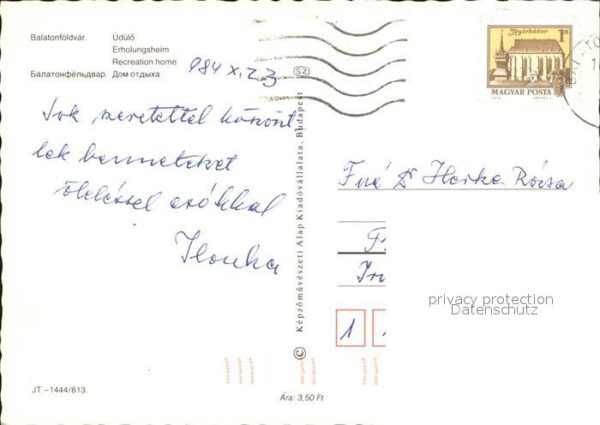 Balatonföldvár. Üdülő
Erholungsheim
Recreation home
Балатонфёльдвар. Дом отдыха
984 X. 23
Sok szeretettel köszönt
lek benneteket
öleléssel csókkal
Ilonka
SZ
Képzőművészeti Alap Kiadóvállalata, Budapest
Nyírbátor
1 Ft
MAGYAR POSTA
Fné Dr Herka Rózsa
1
privacy protection
Datenschutz
JT.–1444/813.
Ára: 3,50 Ft